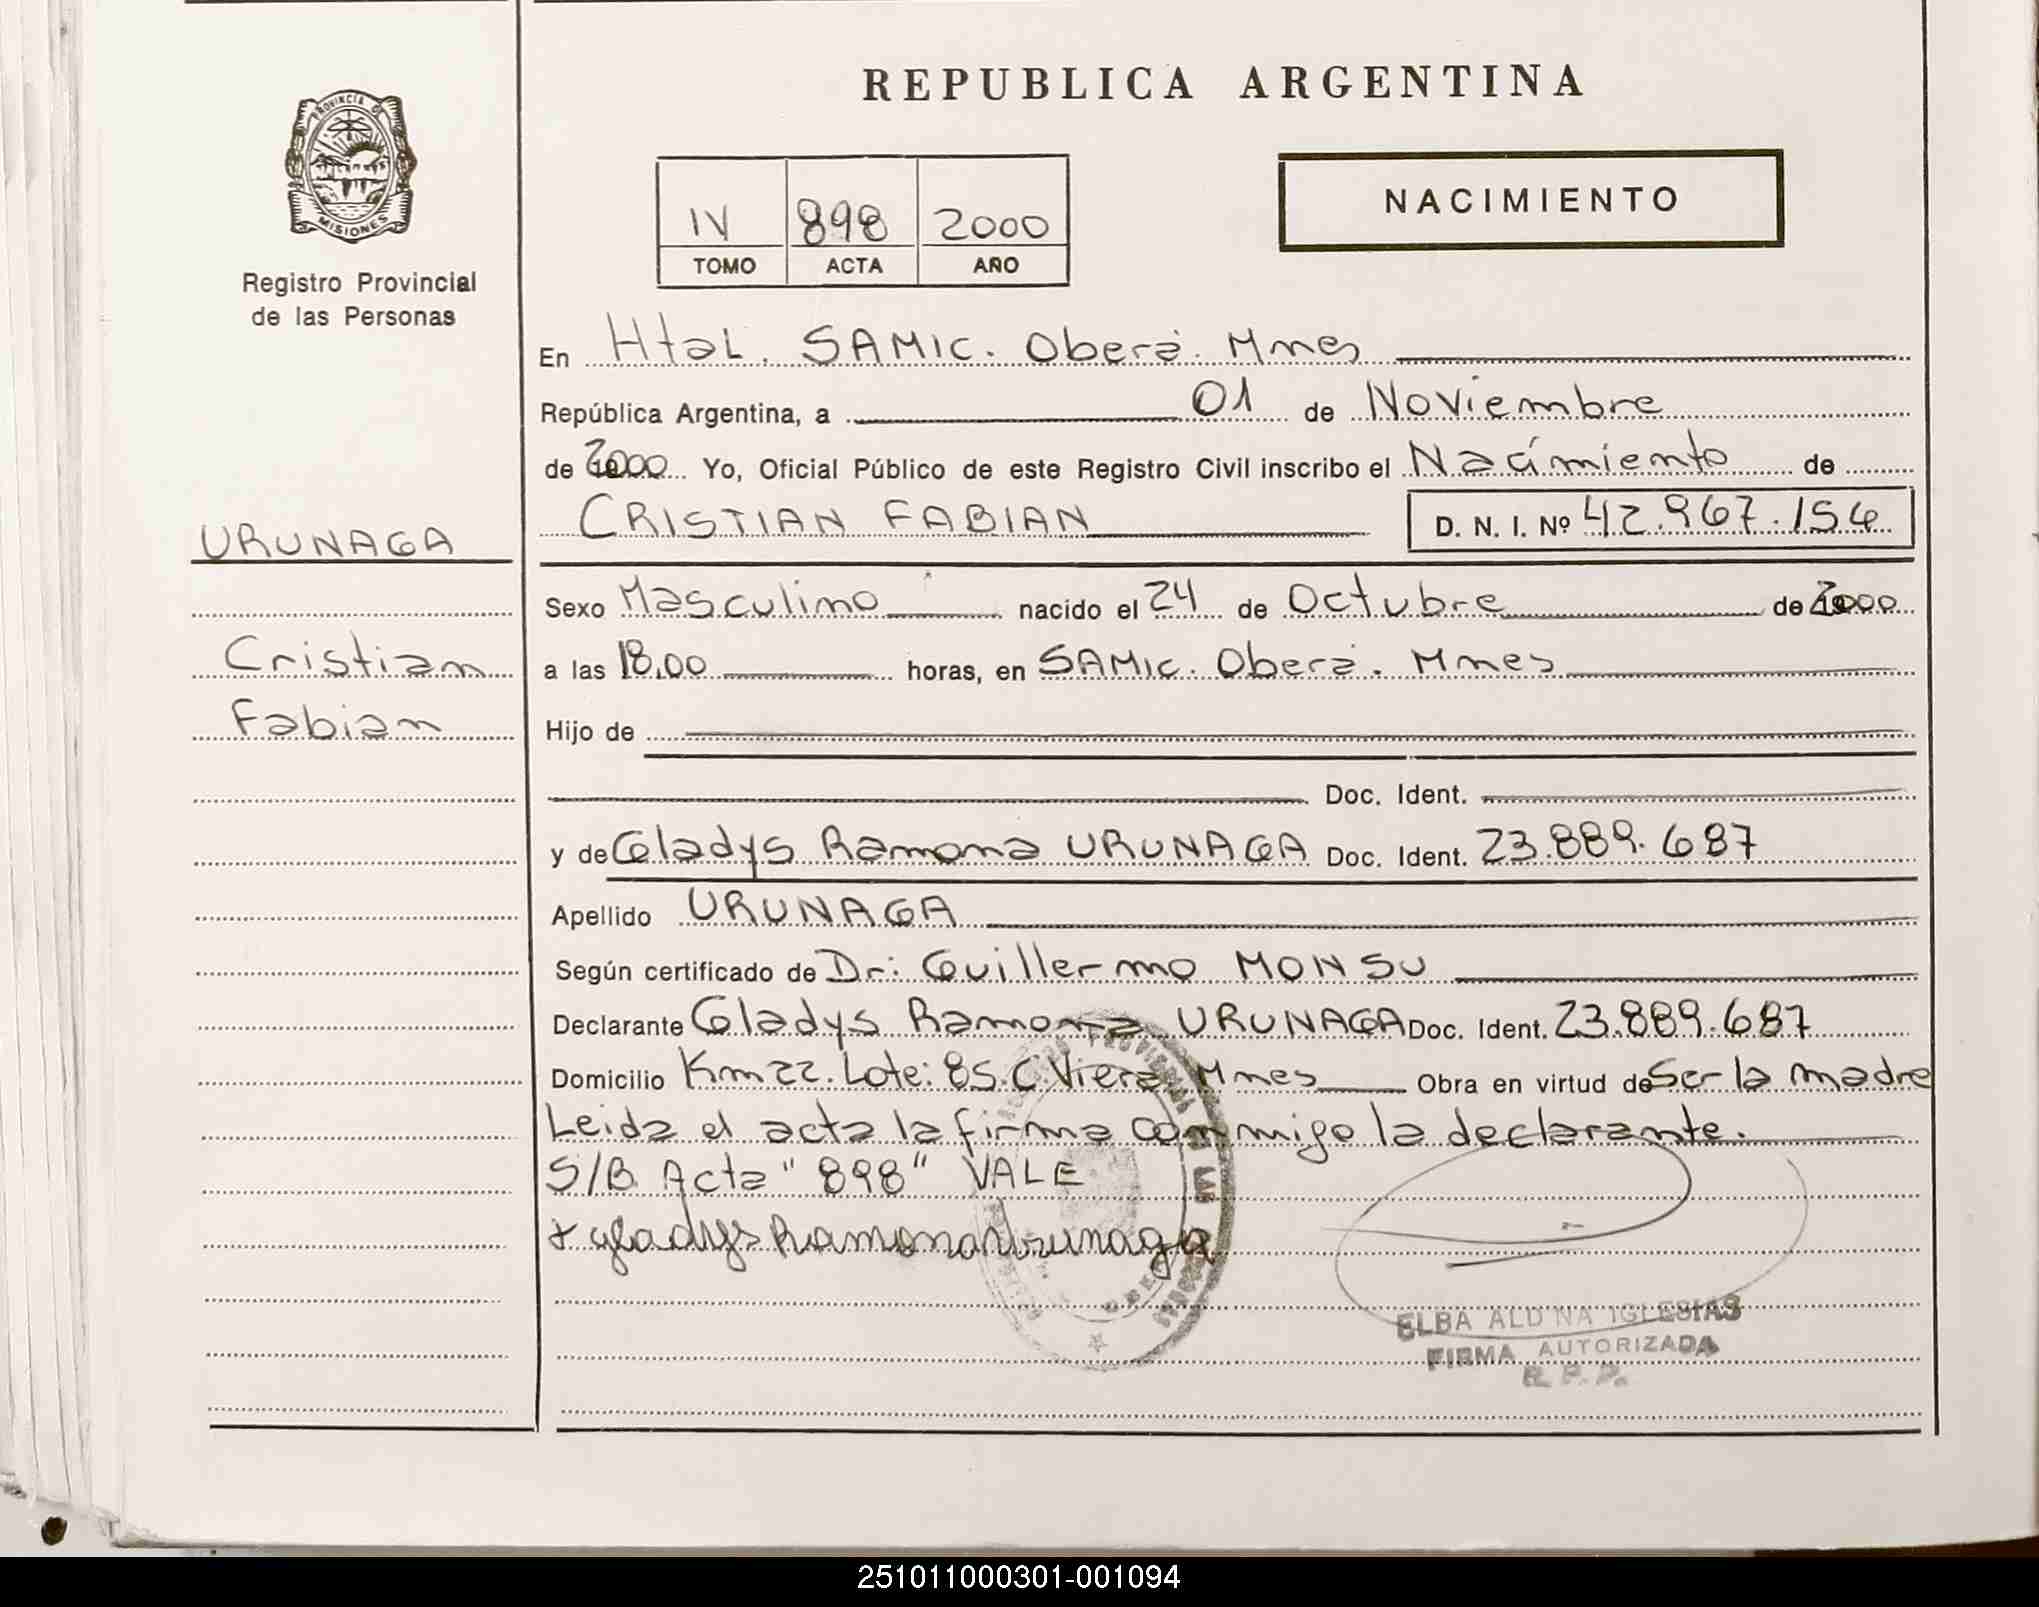 REPUBLICA ARGENTINA
PROVINCIA DE
MISIONES
Registro Provincial
de las Personas
IV 898 2000
TOMO ACTA AÑO
NACIMIENTO
En Htal. SAMIC. Oberá. Mnes
República Argentina, a 01 de Noviembre
de 2000 Yo, Oficial Público de este Registro Civil inscribo el Nacimiento de
CRISTIAN FABIAN D. N. I. Nº 42.967.154
URUNAGA
Cristian
Fabian
Sexo Masculino nacido el 24 de Octubre de 2000
a las 18,00 horas, en SAMIC. Oberá. Mnes
Hijo de
Doc. Ident.
y de Gladys Ramona URUNAGA Doc. Ident. 23.889.687
Apellido URUNAGA
Según certificado de Dr: Guillermo MONSU
Declarante Gladys Ramona URUNAGA Doc. Ident. 23.889.687
Domicilio Km 22. Lote: 85. C. Viera Mnes Obra en virtud de Ser la madre
Leida el acta la firma conmigo la declarante.
S/B Acta "898" VALE
+ gladys Ramona Urunaga
ELBA ALDINA IGLESIAS
FIRMA AUTORIZADA
R. P. P.
251011000301-001094